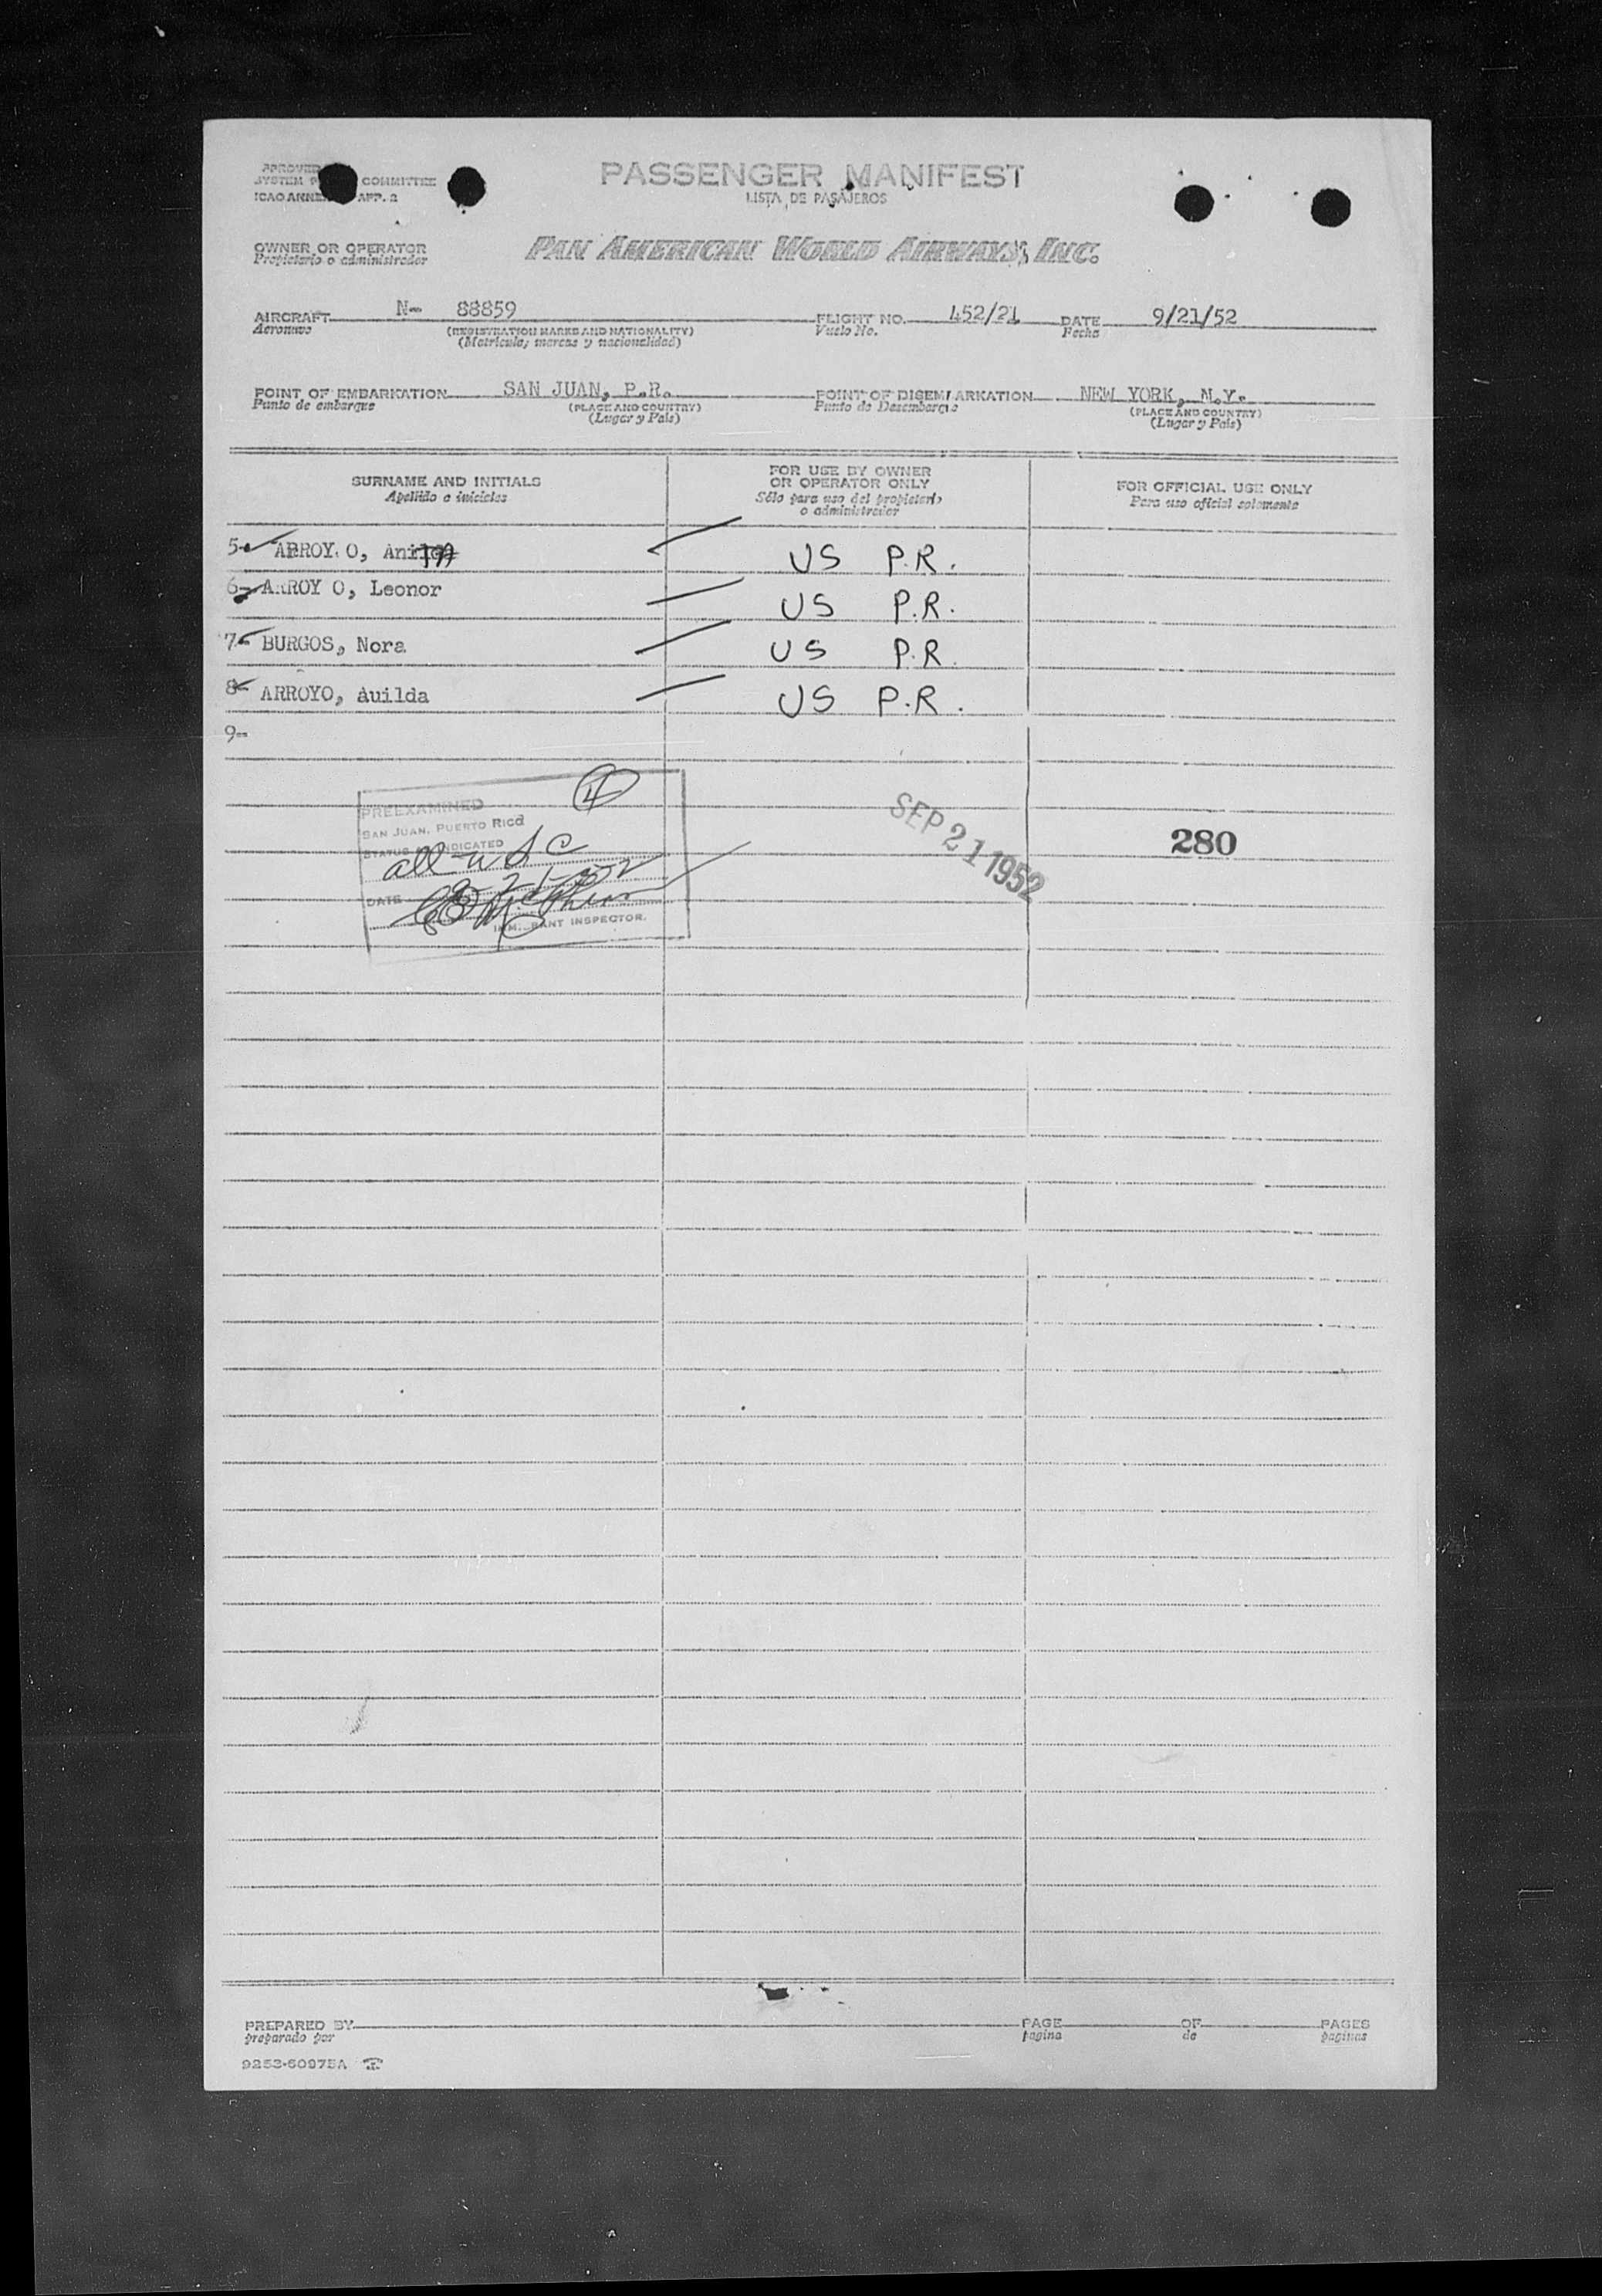 APPROVED
SYSTEM P COMMITTEE
ICAO ANNEX APP. 2
PASSENGER MANIFEST
LISTA DE PASAJEROS
OWNER OR OPERATOR
Propietario o administrador
PAN AMERICAN WORLD AIRWAYS, INC.
AIRCRAFT N- 88859 FLIGHT NO. 452/21 DATE 9/21/52
Aeronave (REGISTRATION MARKS AND NATIONALITY) Vuelo No. Fecha
(Matrícula, marcas y nacionalidad)
POINT OF EMBARKATION SAN JUAN, P.R. POINT OF DISEMBARKATION NEW YORK, N.Y.
Punto de embarque (PLACE AND COUNTRY) Punto de Desembarque (PLACE AND COUNTRY)
(Lugar y País) (Lugar y País)
SURNAME AND INITIALS
Apellido e iniciales
FOR USE BY OWNER
OR OPERATOR ONLY
Sólo para uso del propietario
o administrador
FOR OFFICIAL USE ONLY
Para uso oficial solamente
5- ARROY O, US P.R.
6- ARROY O, Leonor US P.R.
7- BURGOS, Nora US P.R.
8- ARROYO, Auilda US P.R.
9-
4
PREEXAMINED
SAN JUAN, PUERTO RICO
STATUS INDICATED
all U S C
DATE 9-21-52
IMM...RANT INSPECTOR.
SEP 21 1952
280
PREPARED BY PAGE OF PAGES
preparado por pagina de paginas
9253-60975A